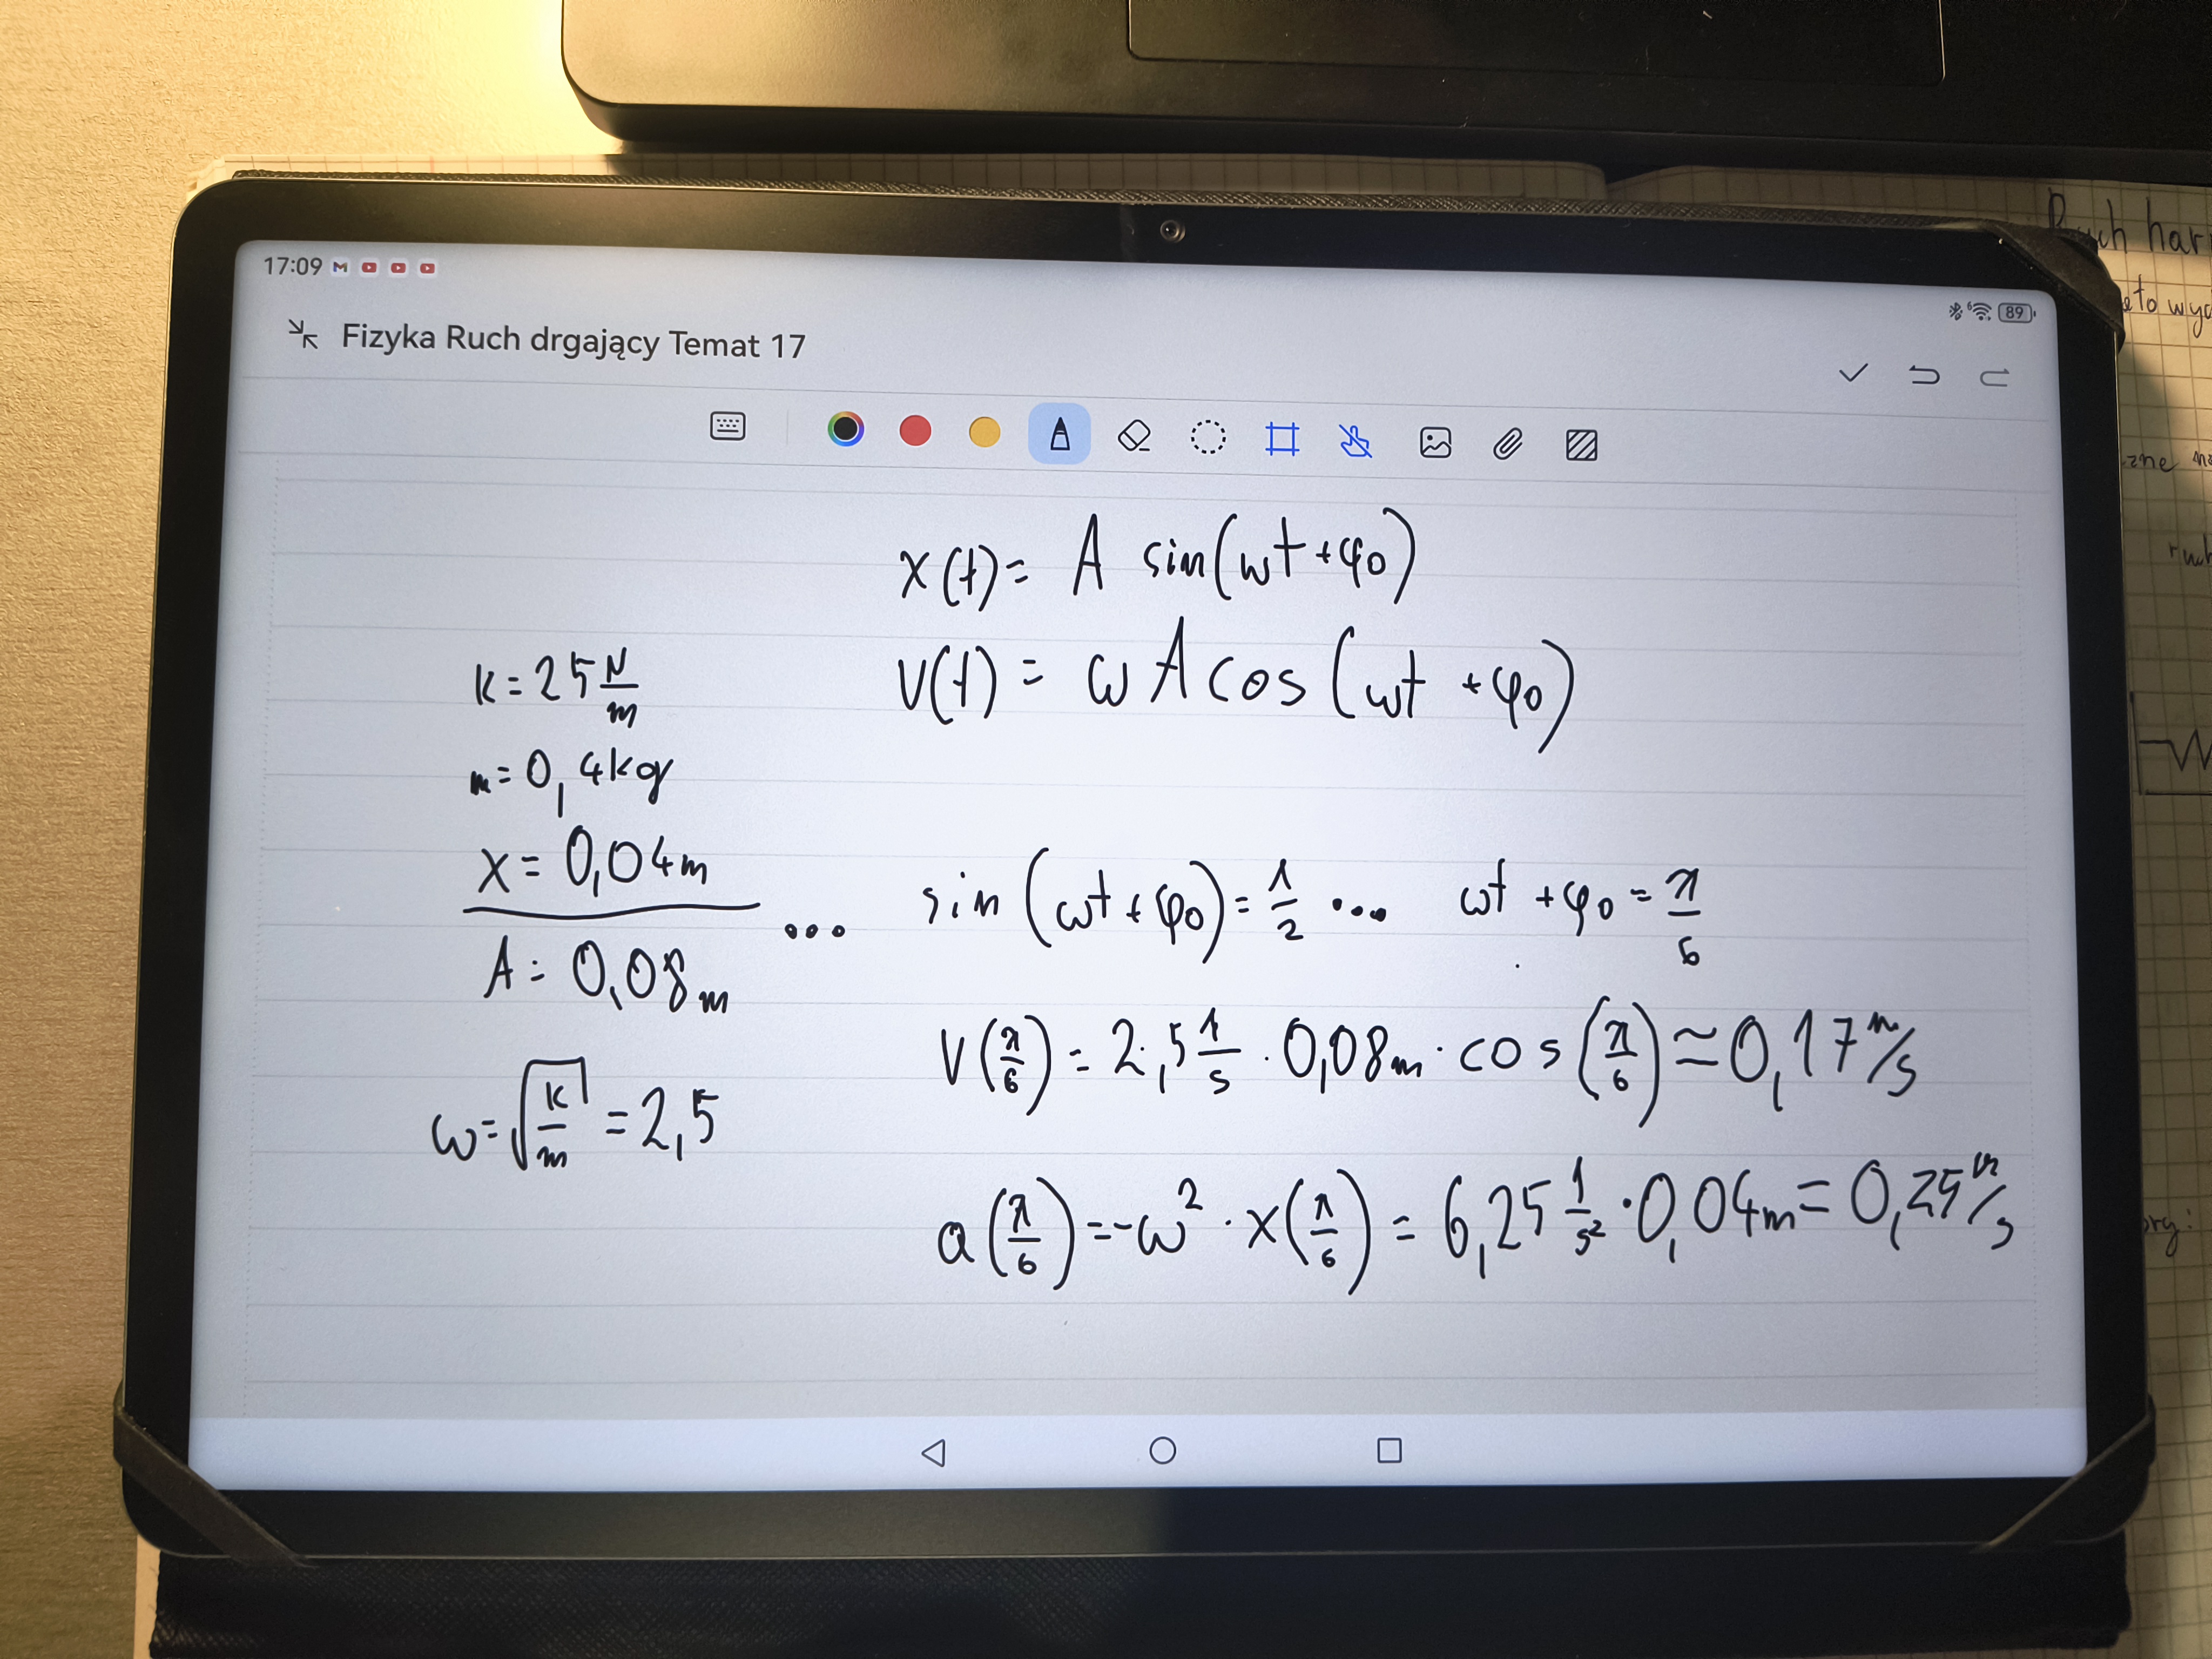 17:09
89
Fizyka Ruch drgający Temat 17
x(t)= A sin(ωt+φ0)
V(t) = ω A cos (ωt +φ0)
k=25 N/m
m=0,4kg
x=0,04m
A=0,08m
...
sin (ωt+φ0)=1/2 ... ωt +φ0=π/6
V(π/6)= 2,5 1/s · 0,08m · cos(π/6)≈0,17 m/s
ω=√(k/m) =2,5
a(π/6)=-ω² · x(π/6)= 6,25 1/s² · 0,04m= 0,25 m/s
Ruch har
eto wyc
zne
ruch